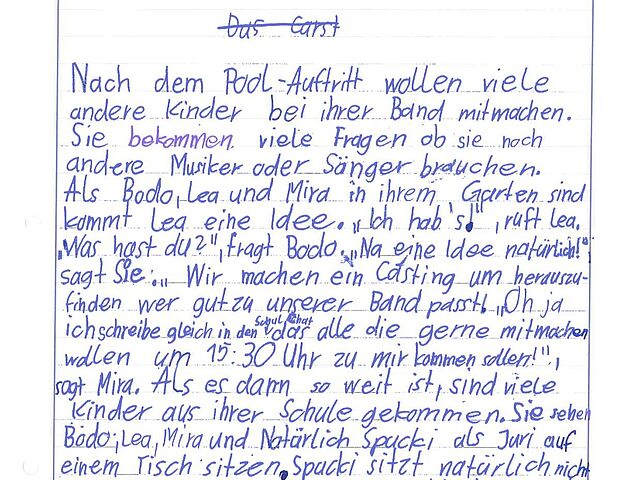 Das Carst
Nach dem Pool-Auftritt wollen viele
andere Kinder bei ihrer Band mitmachen.
Sie bekommen viele Fragen ob sie noch
andere Musiker oder Sänger brauchen.
Als Bodo, Lea und Mira in ihrem Garten sind
kommt Lea eine Idee. „Ich hab's!", ruft Lea.
„Was hast du?", fragt Bodo. „Na eine Idee natürlich!"
sagt Sie. „Wir machen ein Casting um herauszu-
finden wer gut zu unserer Band passt! „Oh ja
ich schreibe gleich in den Schul Chat das alle die gerne mitmachen
wollen um 15:30 Uhr zu mir kommen sollen!",
sagt Mira. Als es dann so weit ist, sind viele
Kinder aus ihrer Schule gekommen. Sie sehen
Bodo, Lea, Mira und Natürlich Spucki als Juri auf
einem Tisch sitzen. Spucki sitzt natürlich nicht